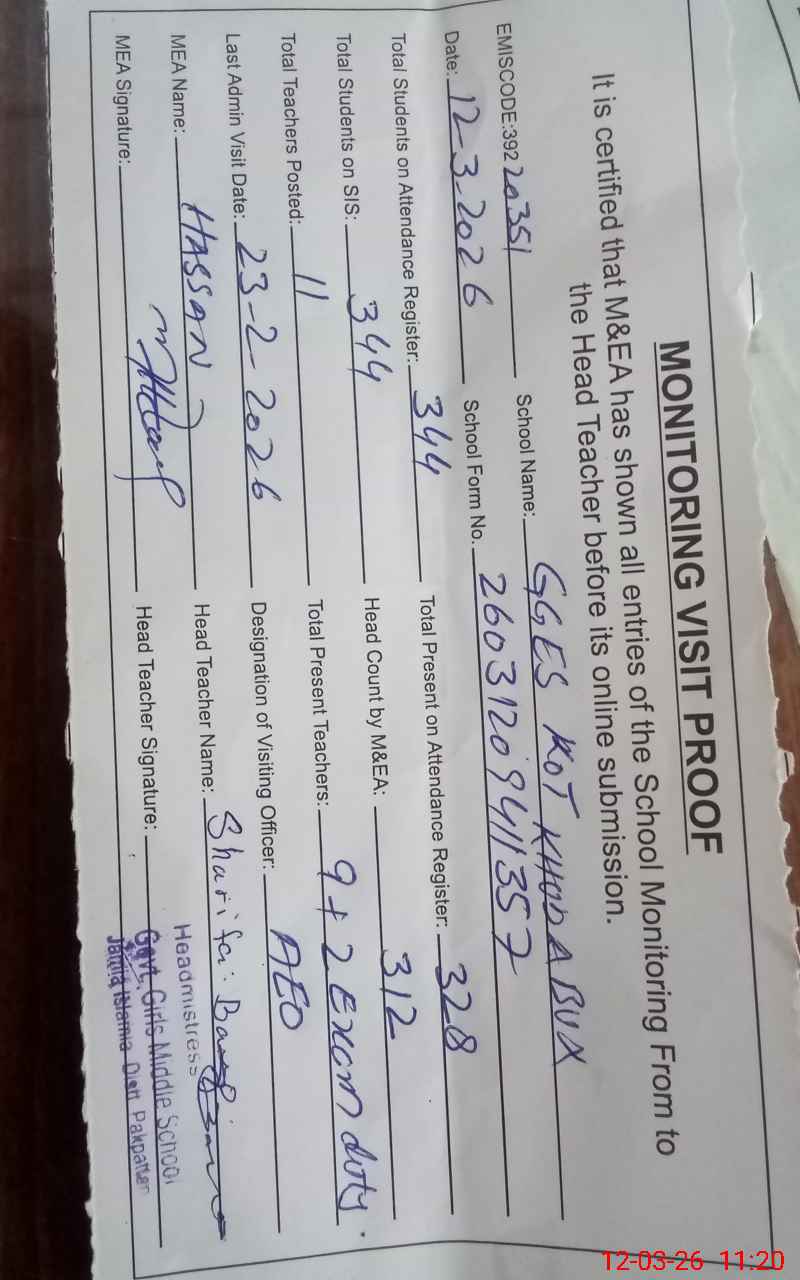 MONITORING VISIT PROOF
It is certified that M&EA has shown all entries of the School Monitoring From to
the Head Teacher before its online submission.
EMISCODE:392 20351 School Name: GGES KOT KHUDA BUX
Date: 12-3-2026 School Form No. 26031209411357
Total Students on Attendance Register: 344 Total Present on Attendance Register: 328
Total Students on SIS: 344 Head Count by M&EA: 312
Total Teachers Posted: 11 Total Present Teachers: 9+2 Exam duty.
Last Admin Visit Date: 23-2-2026 Designation of Visiting Officer: AEO
MEA Name: HASSAN Head Teacher Name: Sharifa
MEA Signature: Head Teacher Signature:
Headmistress
Govt. Girls Middle School
Jamia Islamia Distt Pakpattan
12-03-26 11:20